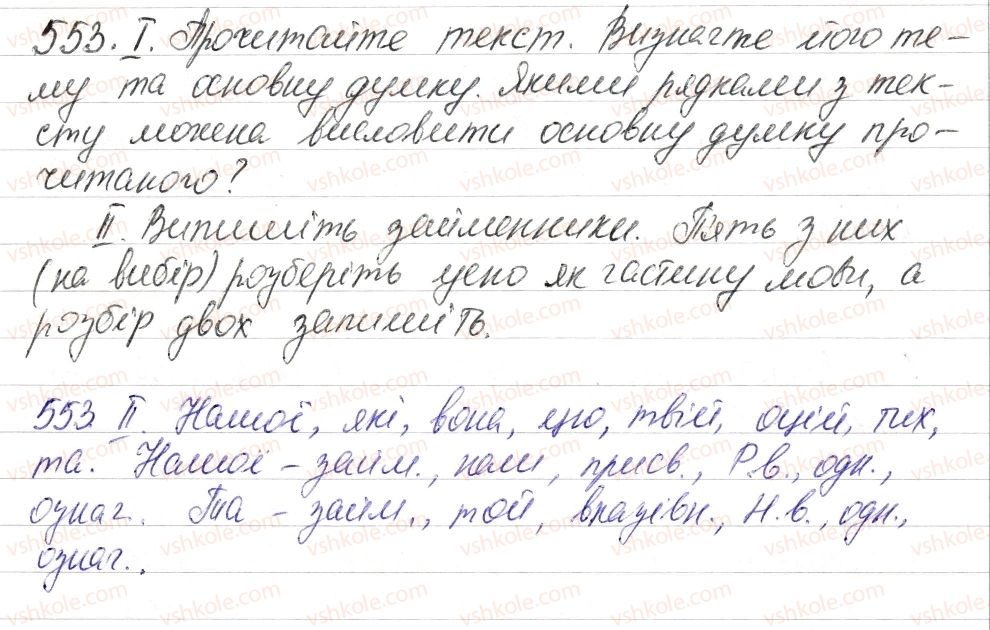 553. I. Прочитайте текст. Визначте його те-
му та основну думку. Якими рядками з тек-
сту можна висловити основну думку про-
читаного?
II. Випишіть займенники. П'ять з них
(на вибір) розберіть усно як частину мови, а
розбір двох запишіть.
553. II. Нашої, які, вона, що, твій, оцій, тих,
та. Нашої – займ., наш, присв., Р.в., одн.,
означ. Та – займ., той, вказівн., Н.в., одн.,
означ..